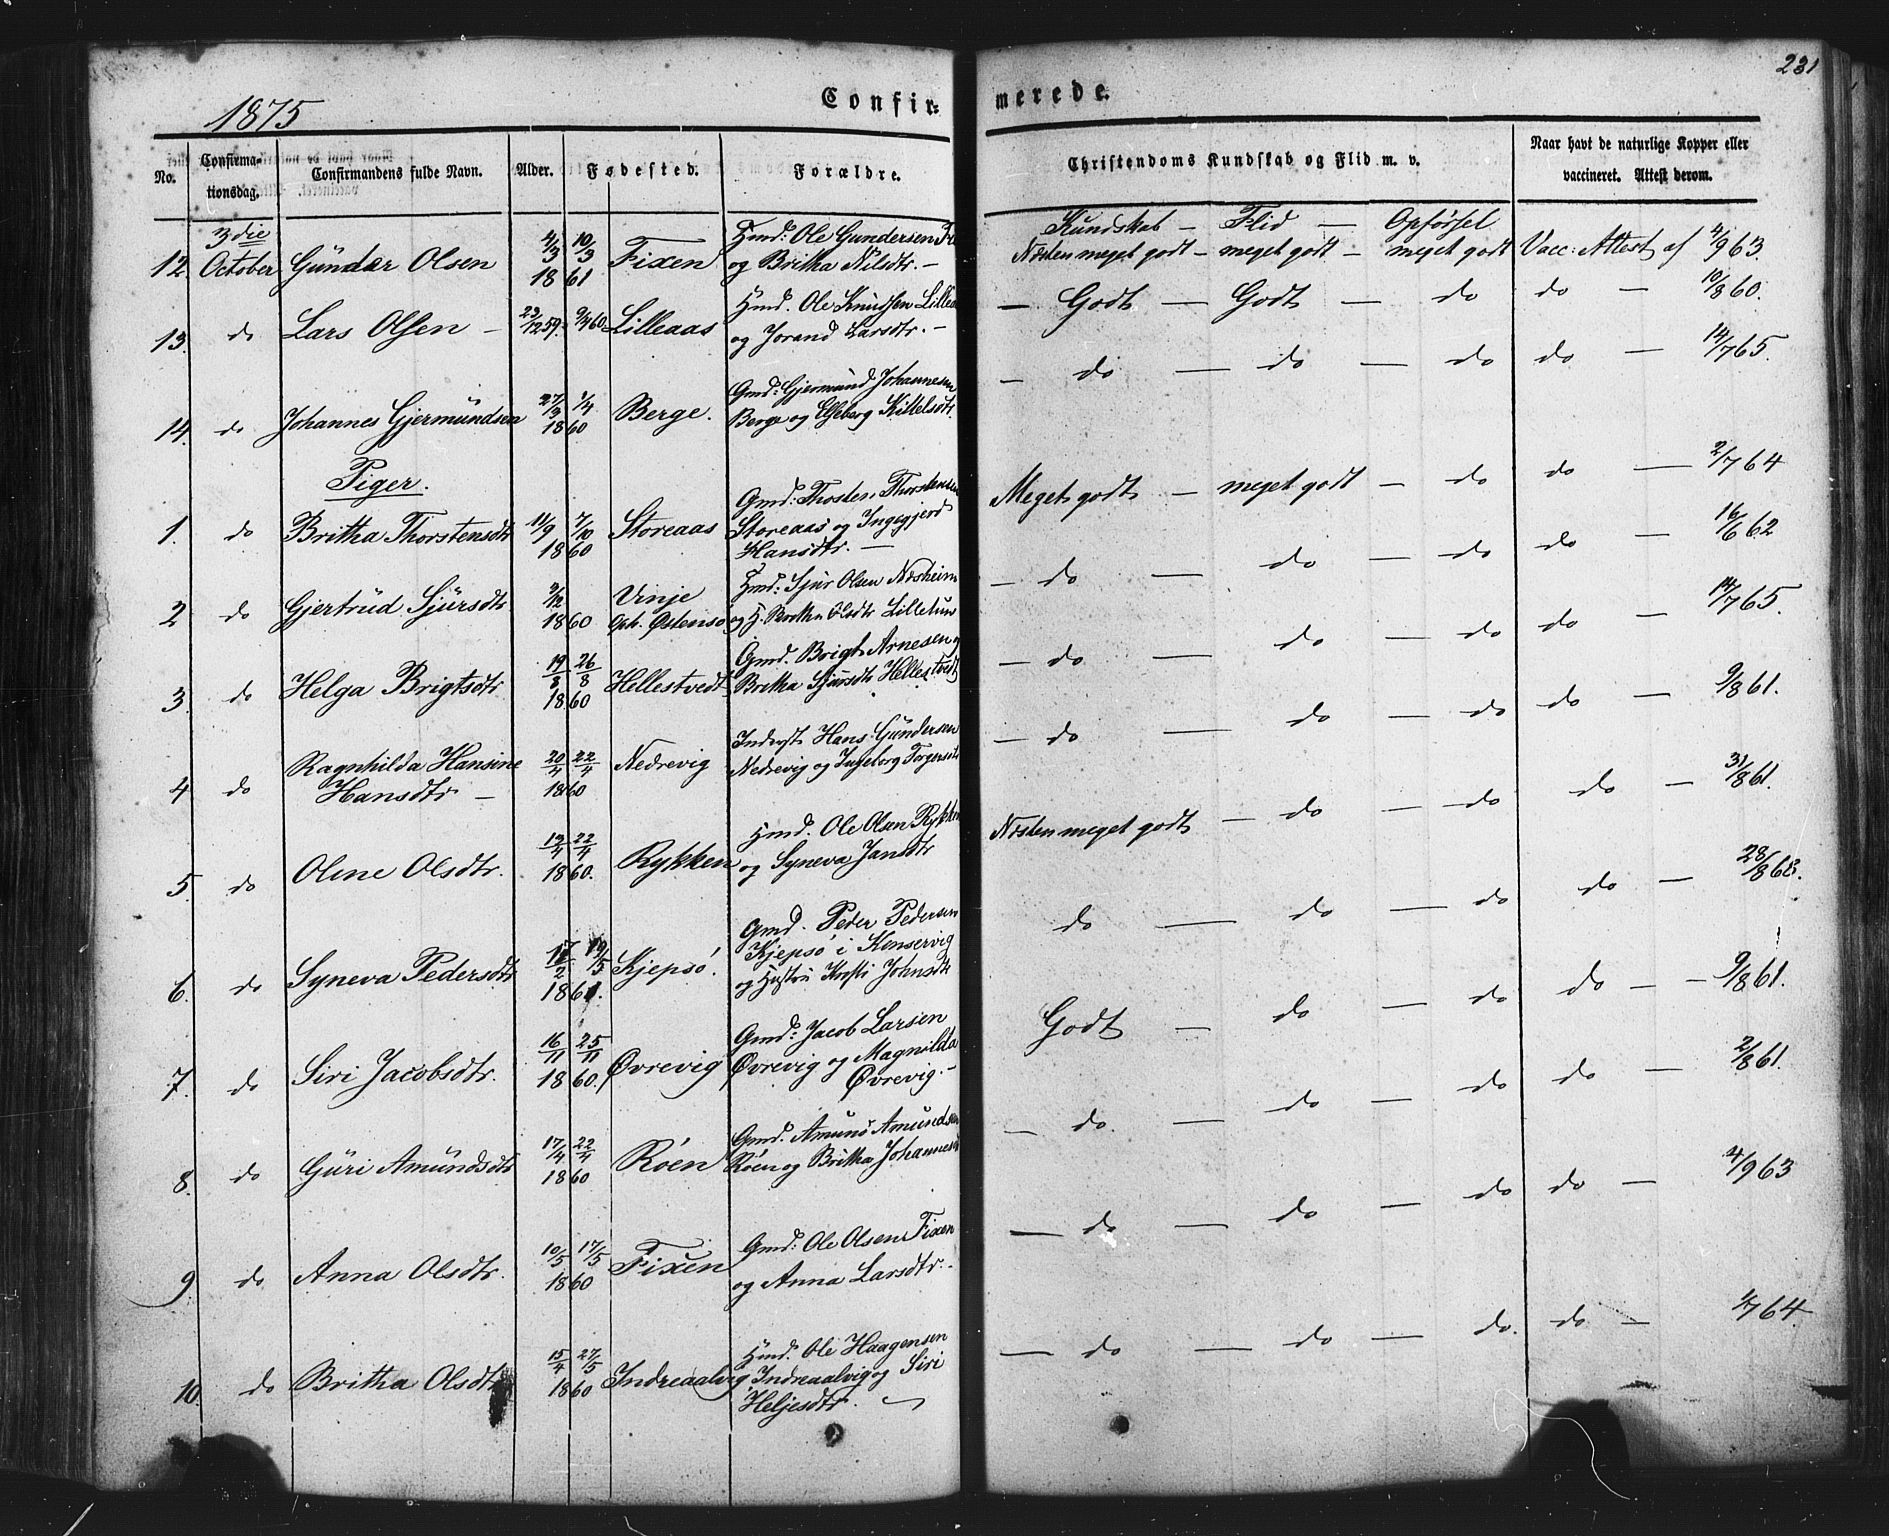 231
1875 Confir= merede.
No. Confirma-tionsdag. Confirmandens fulde Navn. Alder. Fødested. Forældre. Christendoms Kundskab og Flid m. v. Naar havt de naturlige Kopper eller vaccineret. Attest derom.
3die Kundskab — Flid — Opførsel
12. October Gunder Olsen 4/3 10/3 1861 Fixen Hmd: Ole Gundersen
og Britha Nilsdtr. — Næsten meget godt — meget godt — meget godt Vacc: Attest af 4/9 63.
13. do Lars Olsen — 23/12 59. 9/4 60 Lilleaas Hmd. Ole Knudsen
og Jorand Larsdtr. — — Godt — Godt — do do — 10/8 60.
14. do Johannes Gjermundsen 27/3 1/4 1860 Berge. Gmd: Gjermund Johannesen
Berge og Kittelsdtr. — do — do — do do — 14/7 65.
Piger.
1. do Britha Thorstensdtr 11/9 7/10 1860 Storeaas Gmd: Thosten Thorstensen
Storeaas og Ingegjerd
Hansdtr. — Meget godt — meget godt — do do — 2/7 64
2 do Gjertrud Sjursdtr 9/12 1860 Vinje
oph. Østensø Hmd: Sjur Olsen Næsheim
og H. Britha Olsdtr Lilletun — do — do — do do — 16/6 62
3. do Helga Brigtsdtr 19/8 26/8 1860 Hellestvedt Gmd. Brigt Arnesen og
Britha Sjursdtr Hellestvedt — do — do — do do — 14/7 65.
4 do Ragnhilda Hansine
Hansdtr — 20/4 22/4 1860 Nedrevig Inderst Hans Gundersen
Nedrevig og Ingeborg Torgersdtr — do — do — do do — 9/8 61.
5. do Oline Olsdtr. 22/4 1860. Rykken Hmd. Ole Olsen Rykken
og Syneva Jansdtr Næsten meget godt — do — do do — 31/8 61.
6. do Syneva Pedersdtr 19/5 1861. Kjepsø. Gmd. Peder Pedersen
Kjepsø i
og Hustru Johnsdtr do — do — do do — 28/8
7. do Siri Jacobsdtr. 16/11 25/11 1860. Øvrevig Gmd: Jacob Larsen
Øvrevig og Magnilda
Øvrevig. — Godt — do — do do — 9/8 61.
8. do Guri Amundsdtr 17/4 22/4 1860 Røen Gmd. Amund Amundsen
Røen og Britha — do. — do — do do — 2/8 61.
9. do Anna Olsdtr. 10/5 17/5 1860 Fixen Gmd: Ole Olsen Fixen
og Anna Larsdtr. — — do — do — do do — 4/9 63
10. do Britha Olsdtr 15/4 27/5 1860 Indreaalvig Hmd. Ole Haagensen
Indreaalvig og Siri
Heljesdtr. — do — do — do. do — 1/7 64.